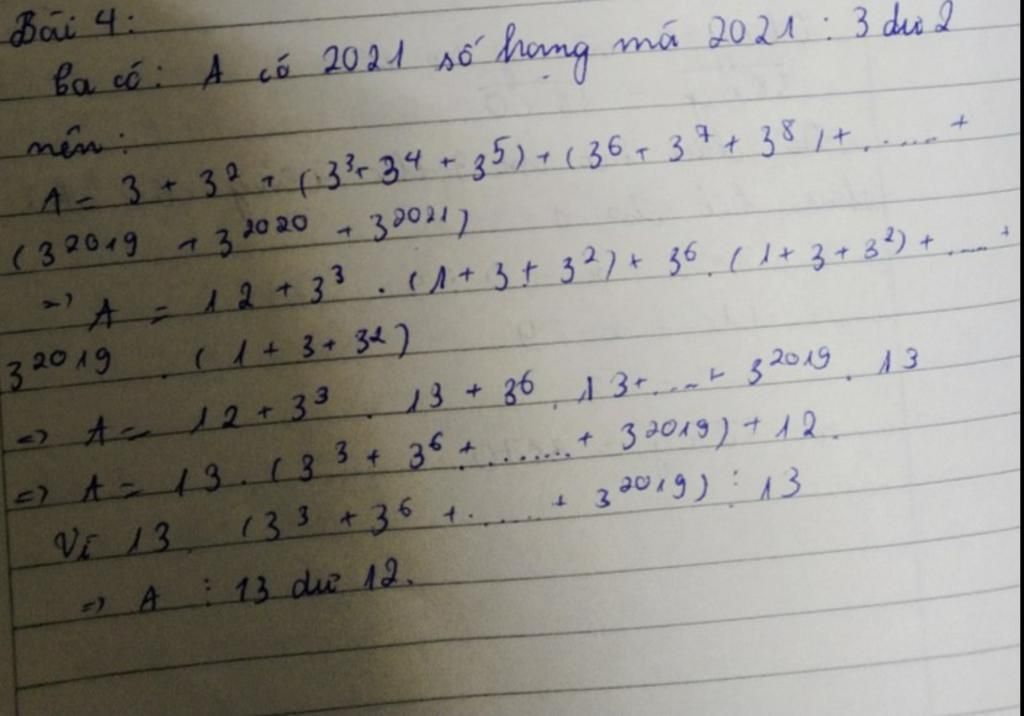 Bài 4:
Ta có: A có 2021 số hạng mà 2021 : 3 dư 2
nên:
A = 3 + 3² + (3³ + 3⁴ + 3⁵) + (3⁶ + 3⁷ + 3⁸) + ...... +
(3²⁰¹⁹ + 3²⁰²⁰ + 3²⁰²¹)
=> A = 12 + 3³ . (1 + 3 + 3²) + 3⁶ . (1 + 3 + 3²) + ..... +
3²⁰¹⁹ . (1 + 3 + 3²)
=> A = 12 + 3³ . 13 + 3⁶ . 13 + .... + 3²⁰¹⁹ . 13
=> A = 13 . (3³ + 3⁶ + ........ + 3²⁰¹⁹) + 12.
Vì 13 . (3³ + 3⁶ + ...... + 3²⁰¹⁹) ⋮ 13
=> A : 13 dư 12.